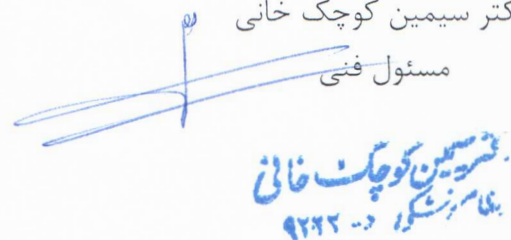 کتر سیمین کوچک خانی
مسئول فنی
دکتر سیمین کوچک خانی
نظام پزشکی د-۹۲۲۲